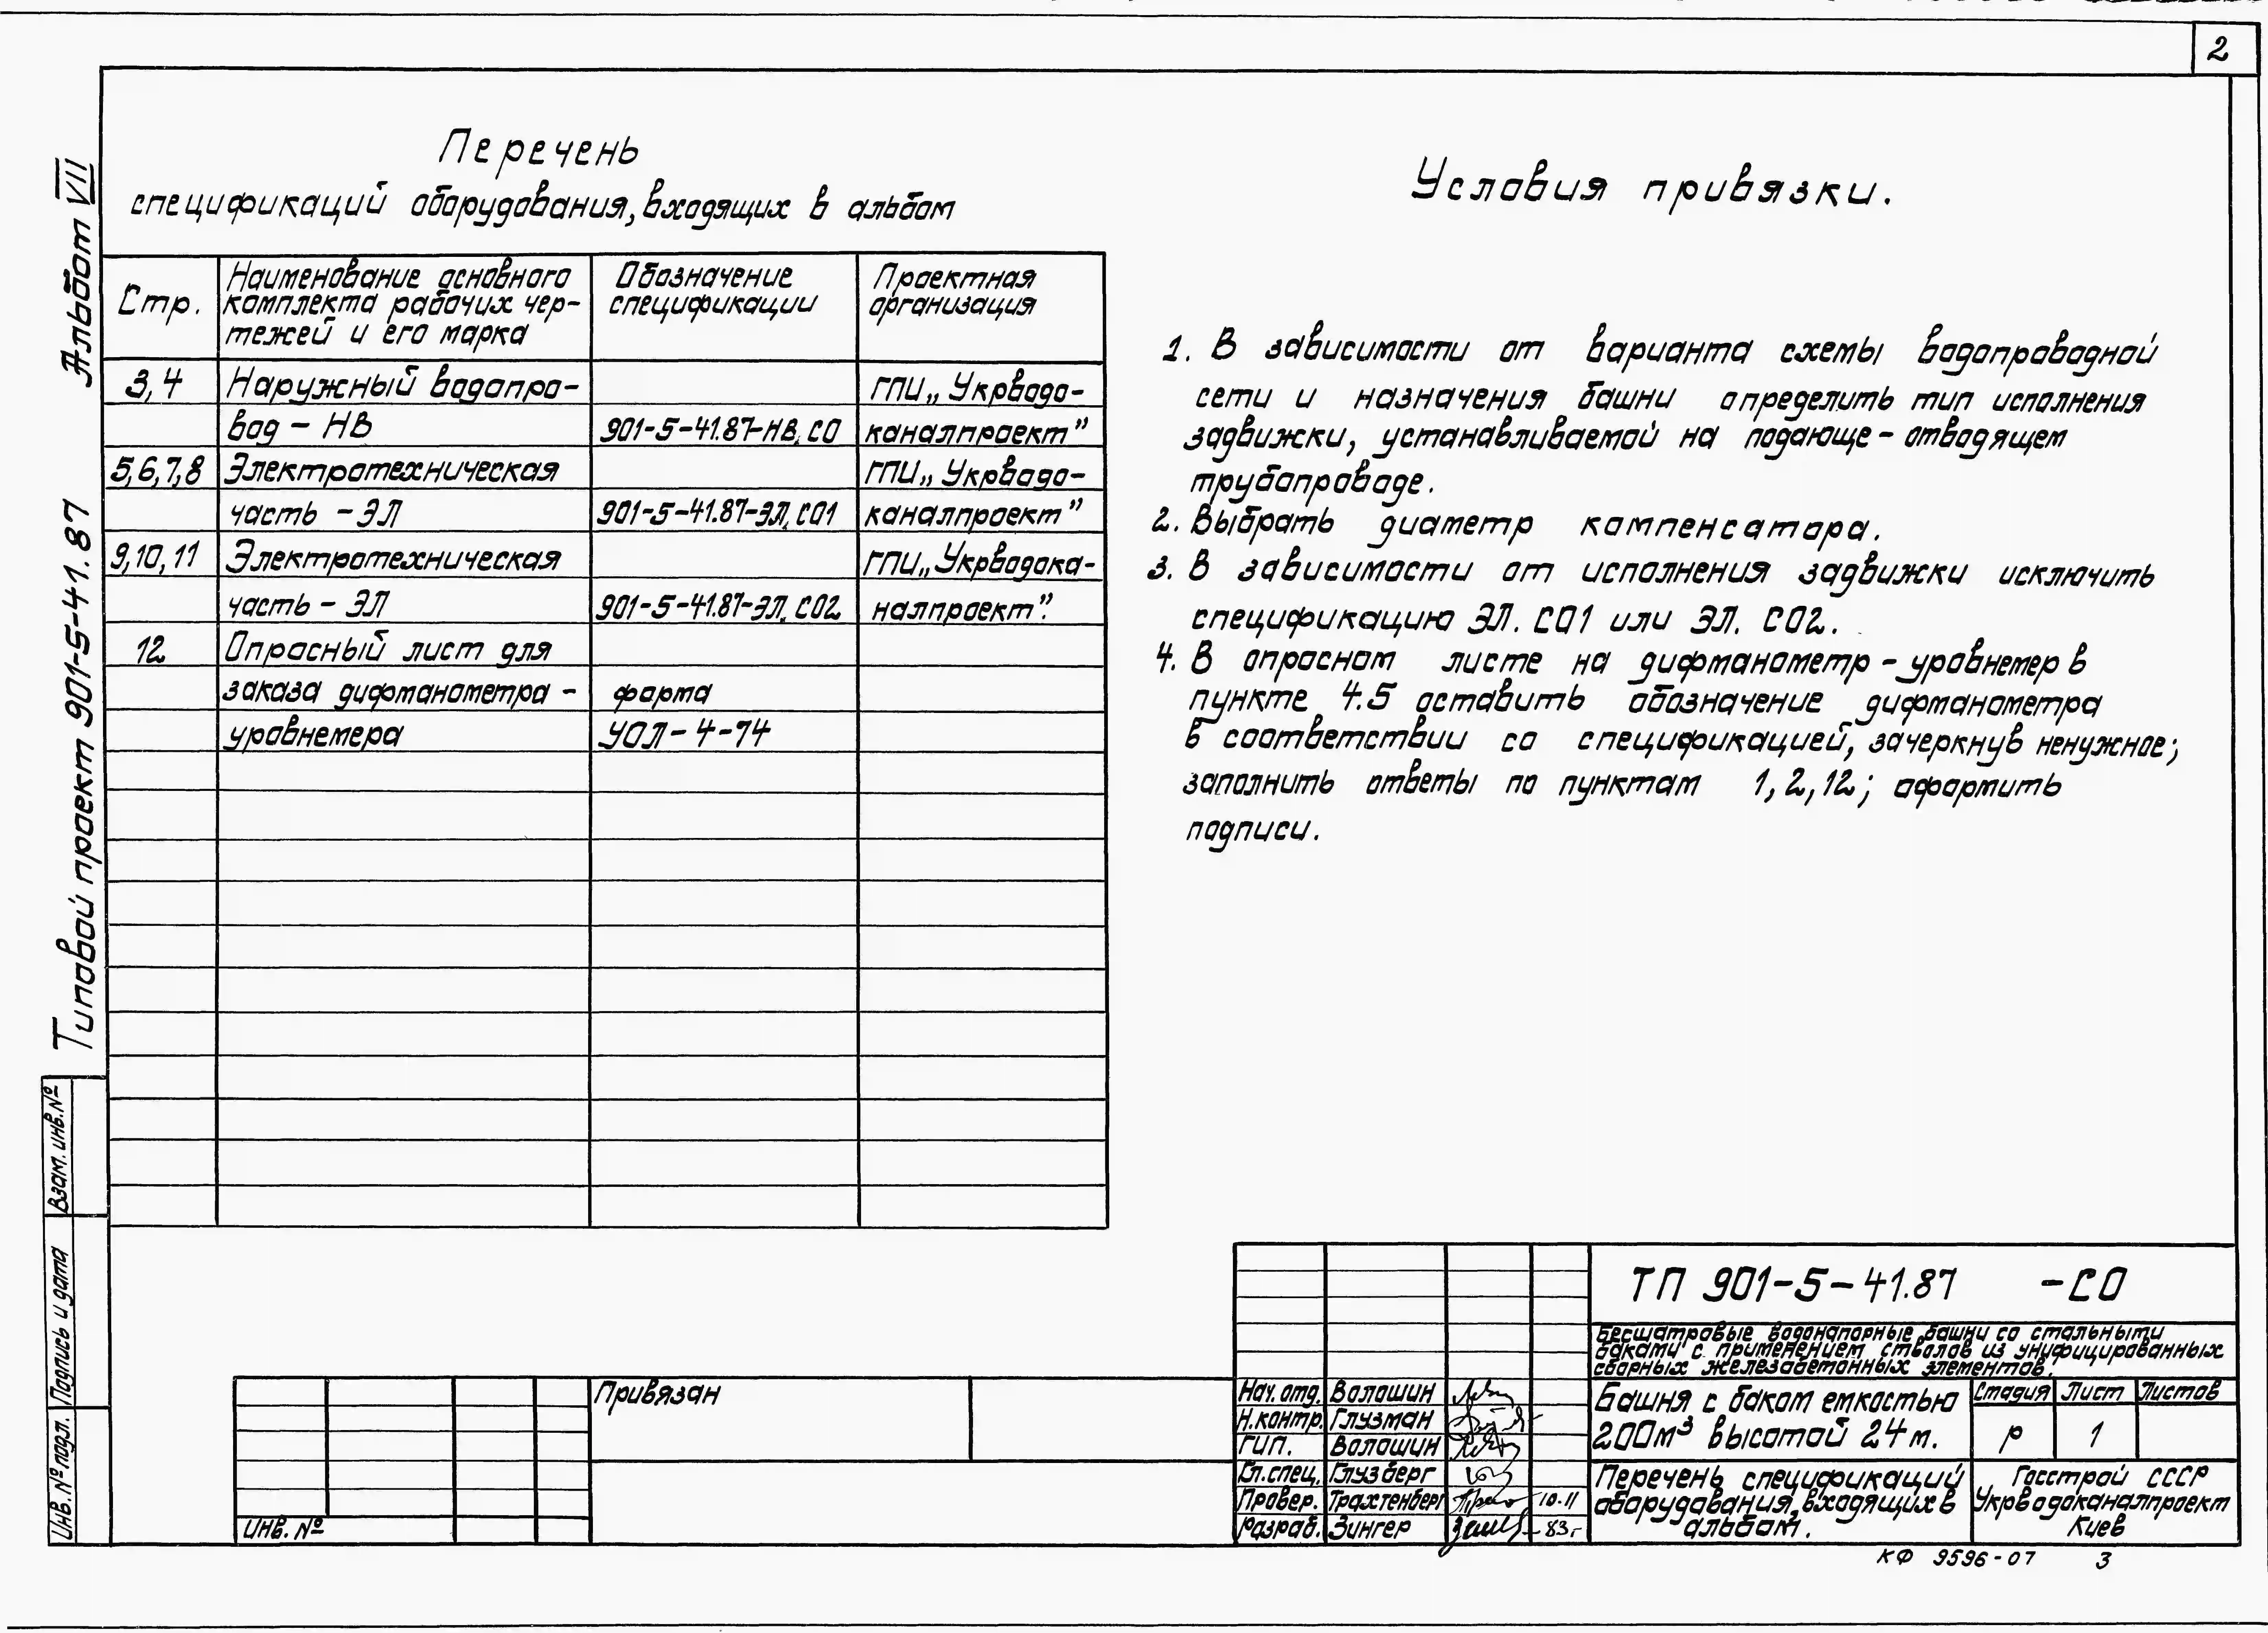 2
Альбом VII
Типовой проект 901-5-41.87
Взам. инв. №
Подпись и дата
Инв. № подл.
Перечень
спецификаций оборудования, входящих в альбом
Стр.
Наименование основного
комплекта рабочих чер-
тежей и его марка
Обозначение
спецификации
Проектная
организация
3,4 Наружный водопро- ГПИ „Укрводо-
вод - НВ 901-5-41.87-НВ.СО каналпроект"
5,6,7,8 Электротехническая ГПИ „Укрводо-
часть - ЭЛ 901-5-41.87-ЭЛ.СО1 каналпроект"
9,10,11 Электротехническая ГПИ „Укрводока-
часть - ЭЛ 901-5-41.87-ЭЛ.СО2 налпроект".
12 Опросный лист для
заказа дифманометра - форма
уровнемера УОЛ-4-74
Условия привязки.
1. В зависимости от варианта схемы водопроводной
сети и назначения башни определить тип исполнения
задвижки, устанавливаемой на подающе-отводящем
трубопроводе.
2. Выбрать диаметр компенсатора.
3. В зависимости от исполнения задвижки исключить
спецификацию ЭЛ. СО1 или ЭЛ. СО2.
4. В опросном листе на дифманометр-уровнемер в
пункте 4.5 оставить обозначение дифманометра
в соответствии со спецификацией, зачеркнув ненужное;
заполнить ответы по пунктам 1,2,12; оформить
подписи.
Привязан
Инв. №
ТП 901-5-41.87 -СО
Бесшатровые водонапорные башни со стальными
баками с применением стволов из унифицированных
сборных железобетонных элементов.
Нач. отд. Волошин
Н.контр. Глузман
ГИП. Волошин
Гл.спец. Глузберг
Провер. Трахтенберг 10.11
Разраб. Зингер 83г
Башня с баком емкостью
200м³ высотой 24м.
Стадия Лист Листов
Р 1
Перечень спецификаций
оборудования, входящих в
альбом.
Госстрой СССР
Укрводоканалпроект
Киев
КФ 9596-07 3